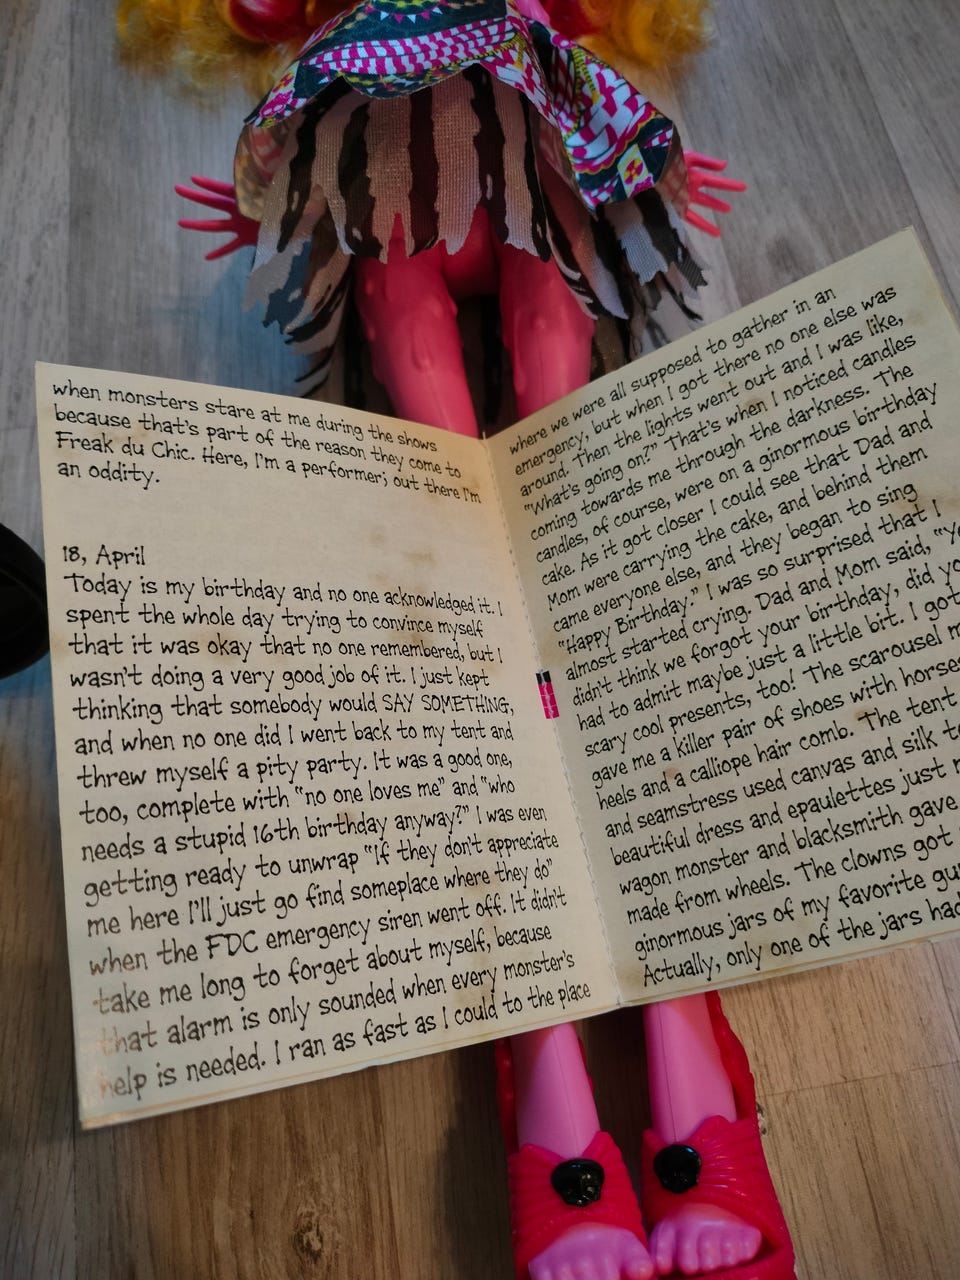 when monsters stare at me during the shows
because that's part of the reason they come to
Freak du Chic. Here, I'm a performer; out there I'm
an oddity.
18, April
Today is my birthday and no one acknowledged it. I
spent the whole day trying to convince myself
that it was okay that no one remembered, but I
wasn't doing a very good job of it. I just kept
thinking that somebody would SAY SOMETHING,
and when no one did I went back to my tent and
threw myself a pity party. It was a good one,
too, complete with "no one loves me" and "who
needs a stupid 16th birthday anyway?" I was even
getting ready to unwrap "If they don't appreciate
me here I'll just go find someplace where they do"
when the FDC emergency siren went off. It didn't
take me long to forget about myself, because
that alarm is only sounded when every monster's
help is needed. I ran as fast as I could to the place
where we were all supposed to gather in an
emergency, but when I got there no one else was
around. Then the lights went out and I was like,
"What's going on?" That's when I noticed candles
coming towards me through the darkness. The
candles, of course, were on a ginormous birthday
cake. As it got closer I could see that Dad and
Mom were carrying the cake, and behind them
came everyone else, and they began to sing
"Happy Birthday." I was so surprised that I
almost started crying. Dad and Mom said,
didn't think we forgot your birthday, did
had to admit maybe just a little bit. I got
scary cool presents, too! The scarousel
gave me a killer pair of shoes with horse
heels and a calliope hair comb. The tent
and seamstress used canvas and silk
beautiful dress and epaulettes just
wagon monster and blacksmith gave
made from wheels. The clowns got
ginormous jars of my favorite
Actually, only one of the jars had